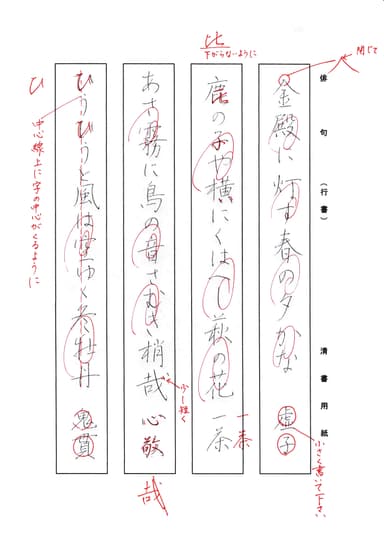 俳句（行書）　清書用紙
金殿に灯す春の夕かな　虚子
閉じて
小さく書いて下さい
鹿の子や横にくはへし萩の花　一茶
比
下がらないように
一茶
あさ霧に鳥の音さむき梢哉　心敬
少し短く
哉
ひうひうと風は空ゆく冬牡丹　鬼貫
ひ
中心線上に字の中心がくるように